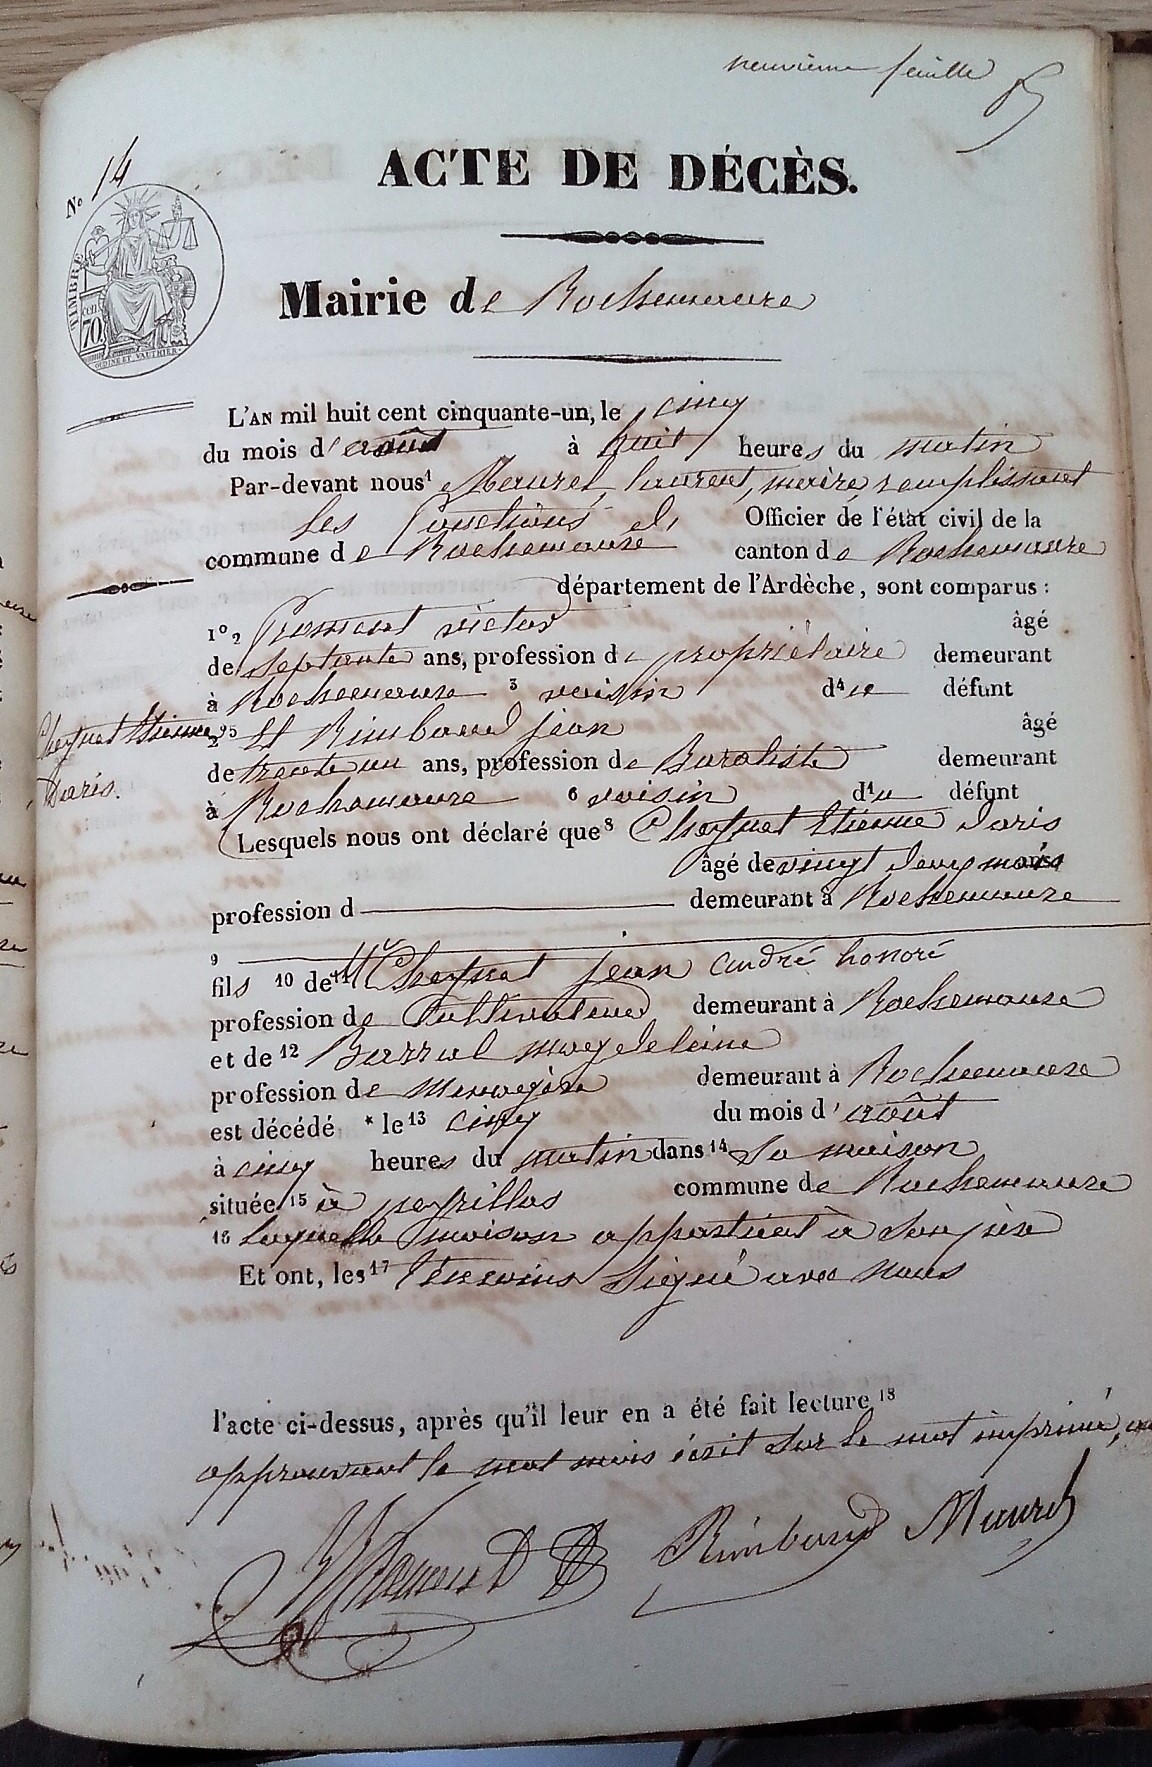 neuvième feuille
N° 14
ACTE DE DÉCÈS.
TIMBRE
cen 70
OUDINE ET VAUTHIER
Mairie de Rochemaure
L'AN mil huit cent cinquante-un, le cinq
du mois d'août à huit heures du matin
Par-devant nous1 Maurel, laurent, maire, remplissant
les fonctions d' Officier de l'état civil de la
commune de Rochemaure canton de Rochemaure
département de l'Ardèche, sont comparus :
1° 2 Froment victor âgé
de septante ans, profession de propriétaire demeurant
à Rochemaure 3 voisin d4u défunt
Cheynet Etienne
daris.
2° 5 Et Rimbaud jean âgé
de trente un ans, profession de Buraliste demeurant
à Rochemaure 6 voisin d4u défunt
Lesquels nous ont déclaré que8 Cheynet Etienne daris
âgé de vingt deux mois
profession d demeurant à Rochemaure
9
fils 10 de11 Cheynet jean andré honoré
profession de Cultivateur demeurant à Rochemaure
et de 12 Barral magdeleine
profession de menagère demeurant à Rochemaure
est décédé * le 13 cinq du mois d'août
à cinq heures du matin dans 14 sa maison
située 15 à peyrillas commune de Rochemaure
16 laquelle maison appartient à son père
Et ont, les 17 témoins signé avec nous
l'acte ci-dessus, après qu'il leur en a été fait lecture 18
approuvant le mot mois écrit sur le mot imprimé,
Froment Rimbaud Maurel